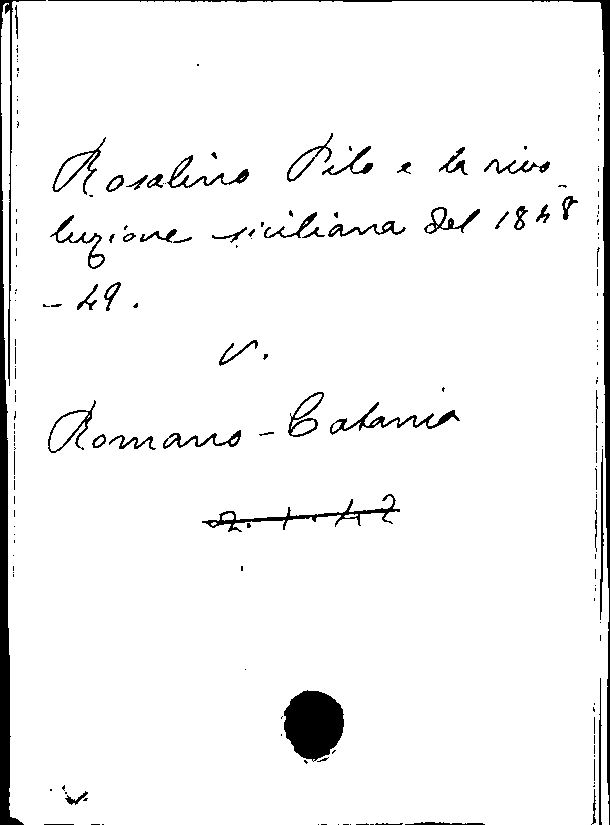 Rosalino Pilo e la rivo
luzione siciliana del 1848
- 49.
v.
Romano - Catania
2. 1. 42